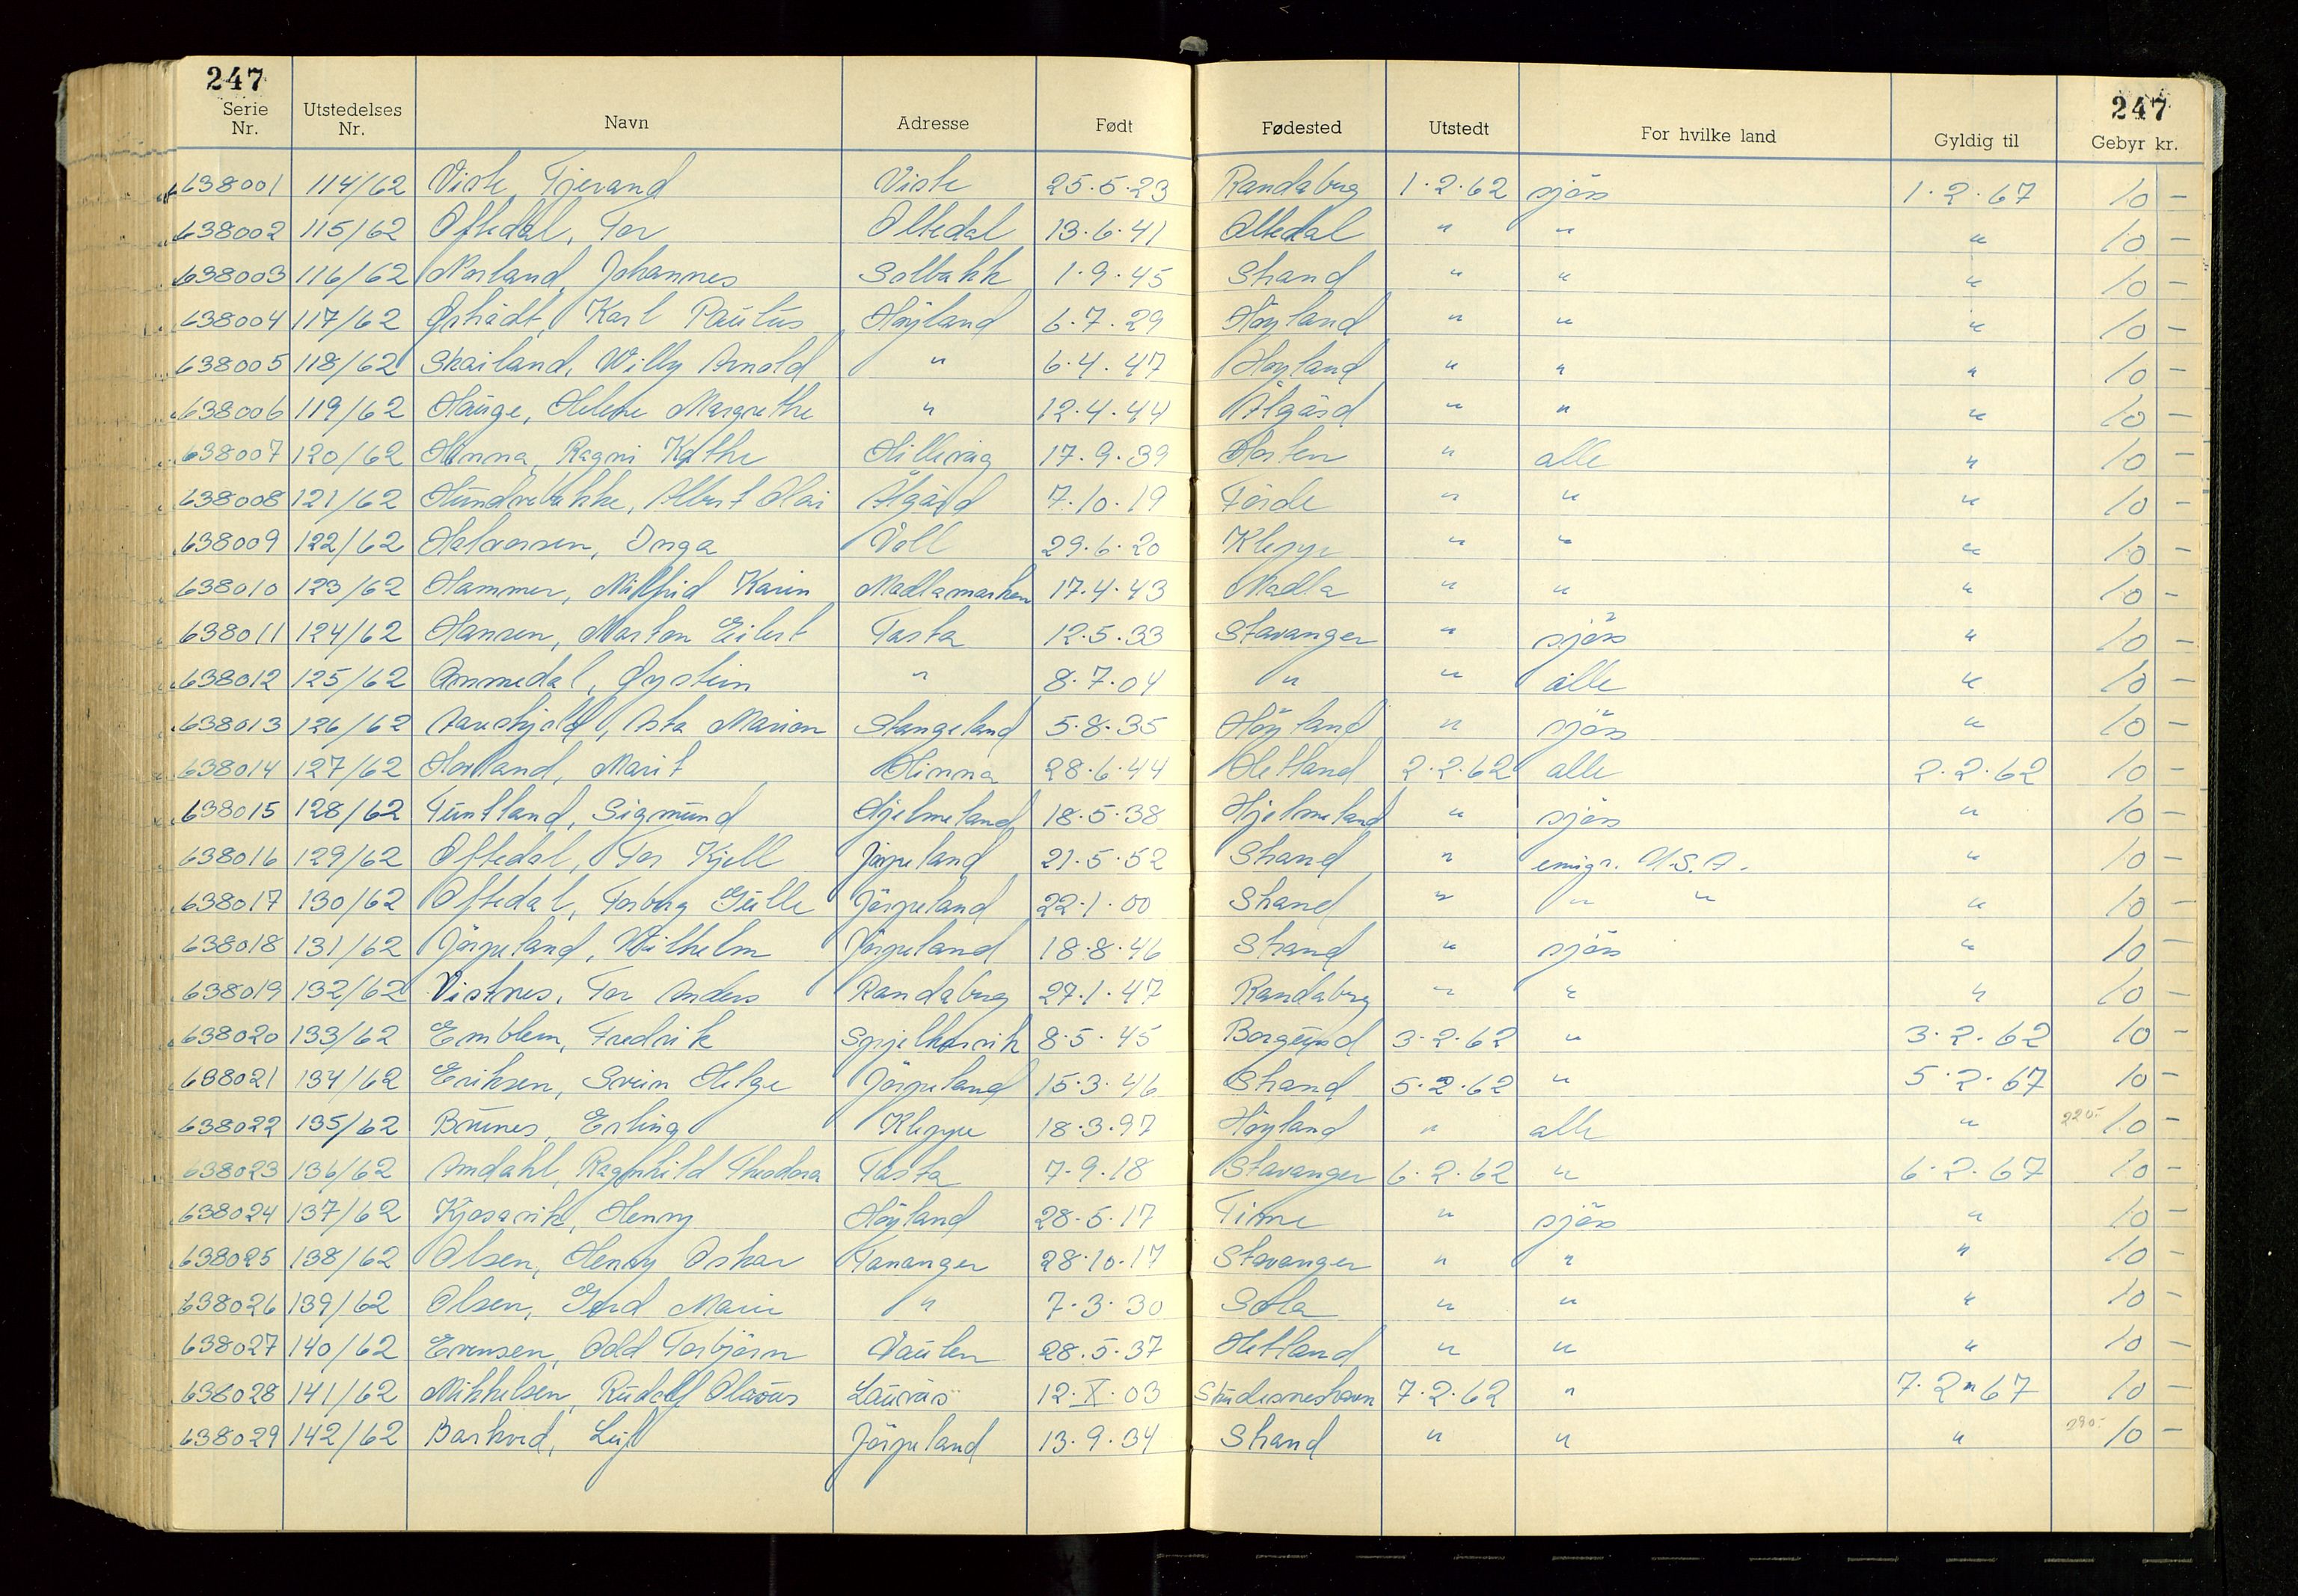 247 247
Serie Nr. Utstedelses Nr. Navn Adresse Født Fødested Utstedt For hvilke land Gyldig til Gebyr kr.
638001 114/62 Viste, Tjerand Viste 25.5.23 Randaberg 1.2.62 sjøss 1.2.67 10 -
638002 115/62 Oftedal, Tor Oltedal 13.6.41 Oltedal " " " 10 -
638003 116/62 Norland, Johannes Solbakk 1.9.45 Strand " " " 10 -
638004 117/62 Karl Paulus Høyland 6.7.29 Høyland " " " 10 -
638005 118/62 Skailand, Willy Arnold " 6.4.47 Høyland " " " 10 -
638006 119/62 Hauge, Helene Margrethe " 12.4.44 Ålgård " " " 10 -
638007 120/62 Hinna, Ragni Kathe Hillevåg 17.9.39 Horten " alle " 10 -
638008 121/62 Hundvebakke, Albert Olai Ålgård 7.10.19 Førde " " " 10 -
638009 122/62 Halvorsen, Inga Voll 29.6.20 Kleppe " " " 10 -
638010 123/62 Hammer, Milfrid Karin Madlamarken 17.4.43 Madla " " " 10 -
638011 124/62 Hansen, Morton Eilert Tasta 12.5.33 Stavanger " sjøss " 10 -
638012 125/62 Ommedal, Øystein " 8.7.04 " " alle " 10 -
638013 126/62 Aareskjold, Asta Marion Stangeland 5.8.35 Høyland " sjøss " 10 -
638014 127/62 Marit Hinna 28.6.44 Hetland 2.2.62 alle 2.2.62 10 -
638015 128/62 Tuntland, Sigmund Hjelmeland 18.5.38 Hjelmeland " sjøss " 10 -
638016 129/62 Oftedal, Tor Kjell Jørpeland 21.5.52 Strand " emigr. U.S.A. " 10 -
638017 130/62 Oftedal, Torborg Gulle Jørpeland 22.1.00 Strand " " " " 10 -
638018 131/62 Jørpeland, Wilhelm Jørpeland 18.8.46 Strand " sjøss " 10 -
638019 132/62 Vistnes, Tor Anders Randaberg 27.1.47 Randaberg " " " 10 -
638020 133/62 Emblem, Fredrik Spjelkavik 8.5.45 Borgund 3.2.62 " 3.2.62 10 -
638021 134/62 Eriksen, Svein Helge Jørpeland 15.3.46 Strand 5.2.62 " 5.2.67 10 -
638022 135/62 Brunes, Erling Kleppe 18.3.97 Høyland " alle " 220.- 10 -
638023 136/62 Amdahl, Ragnhild Theodora Tasta 7.9.18 Stavanger 6.2.62 " 6.2.67 10 -
638024 137/62 Kjosavik, Henny Høyland 28.5.17 Time " sjøss " 10 -
638025 138/62 Olsen, Henry Oskar Tananger 28.10.17 Stavanger " " " 10 -
638026 139/62 Olsen, Gerd Marie " 7.3.30 Sola " " " 10 -
638027 140/62 Evensen, Odd Torbjørn Vaulen 28.5.37 Hetland " " " 10 -
638028 141/62 Mikkelsen, Rudolf Olavus Lauvås 12.X.03 Skudesneshavn 7.2.62 " 7.2.67 10 -
638029 142/62 Barkved, Leif Jørpeland 13.9.34 Strand " " " 290.- 10 -